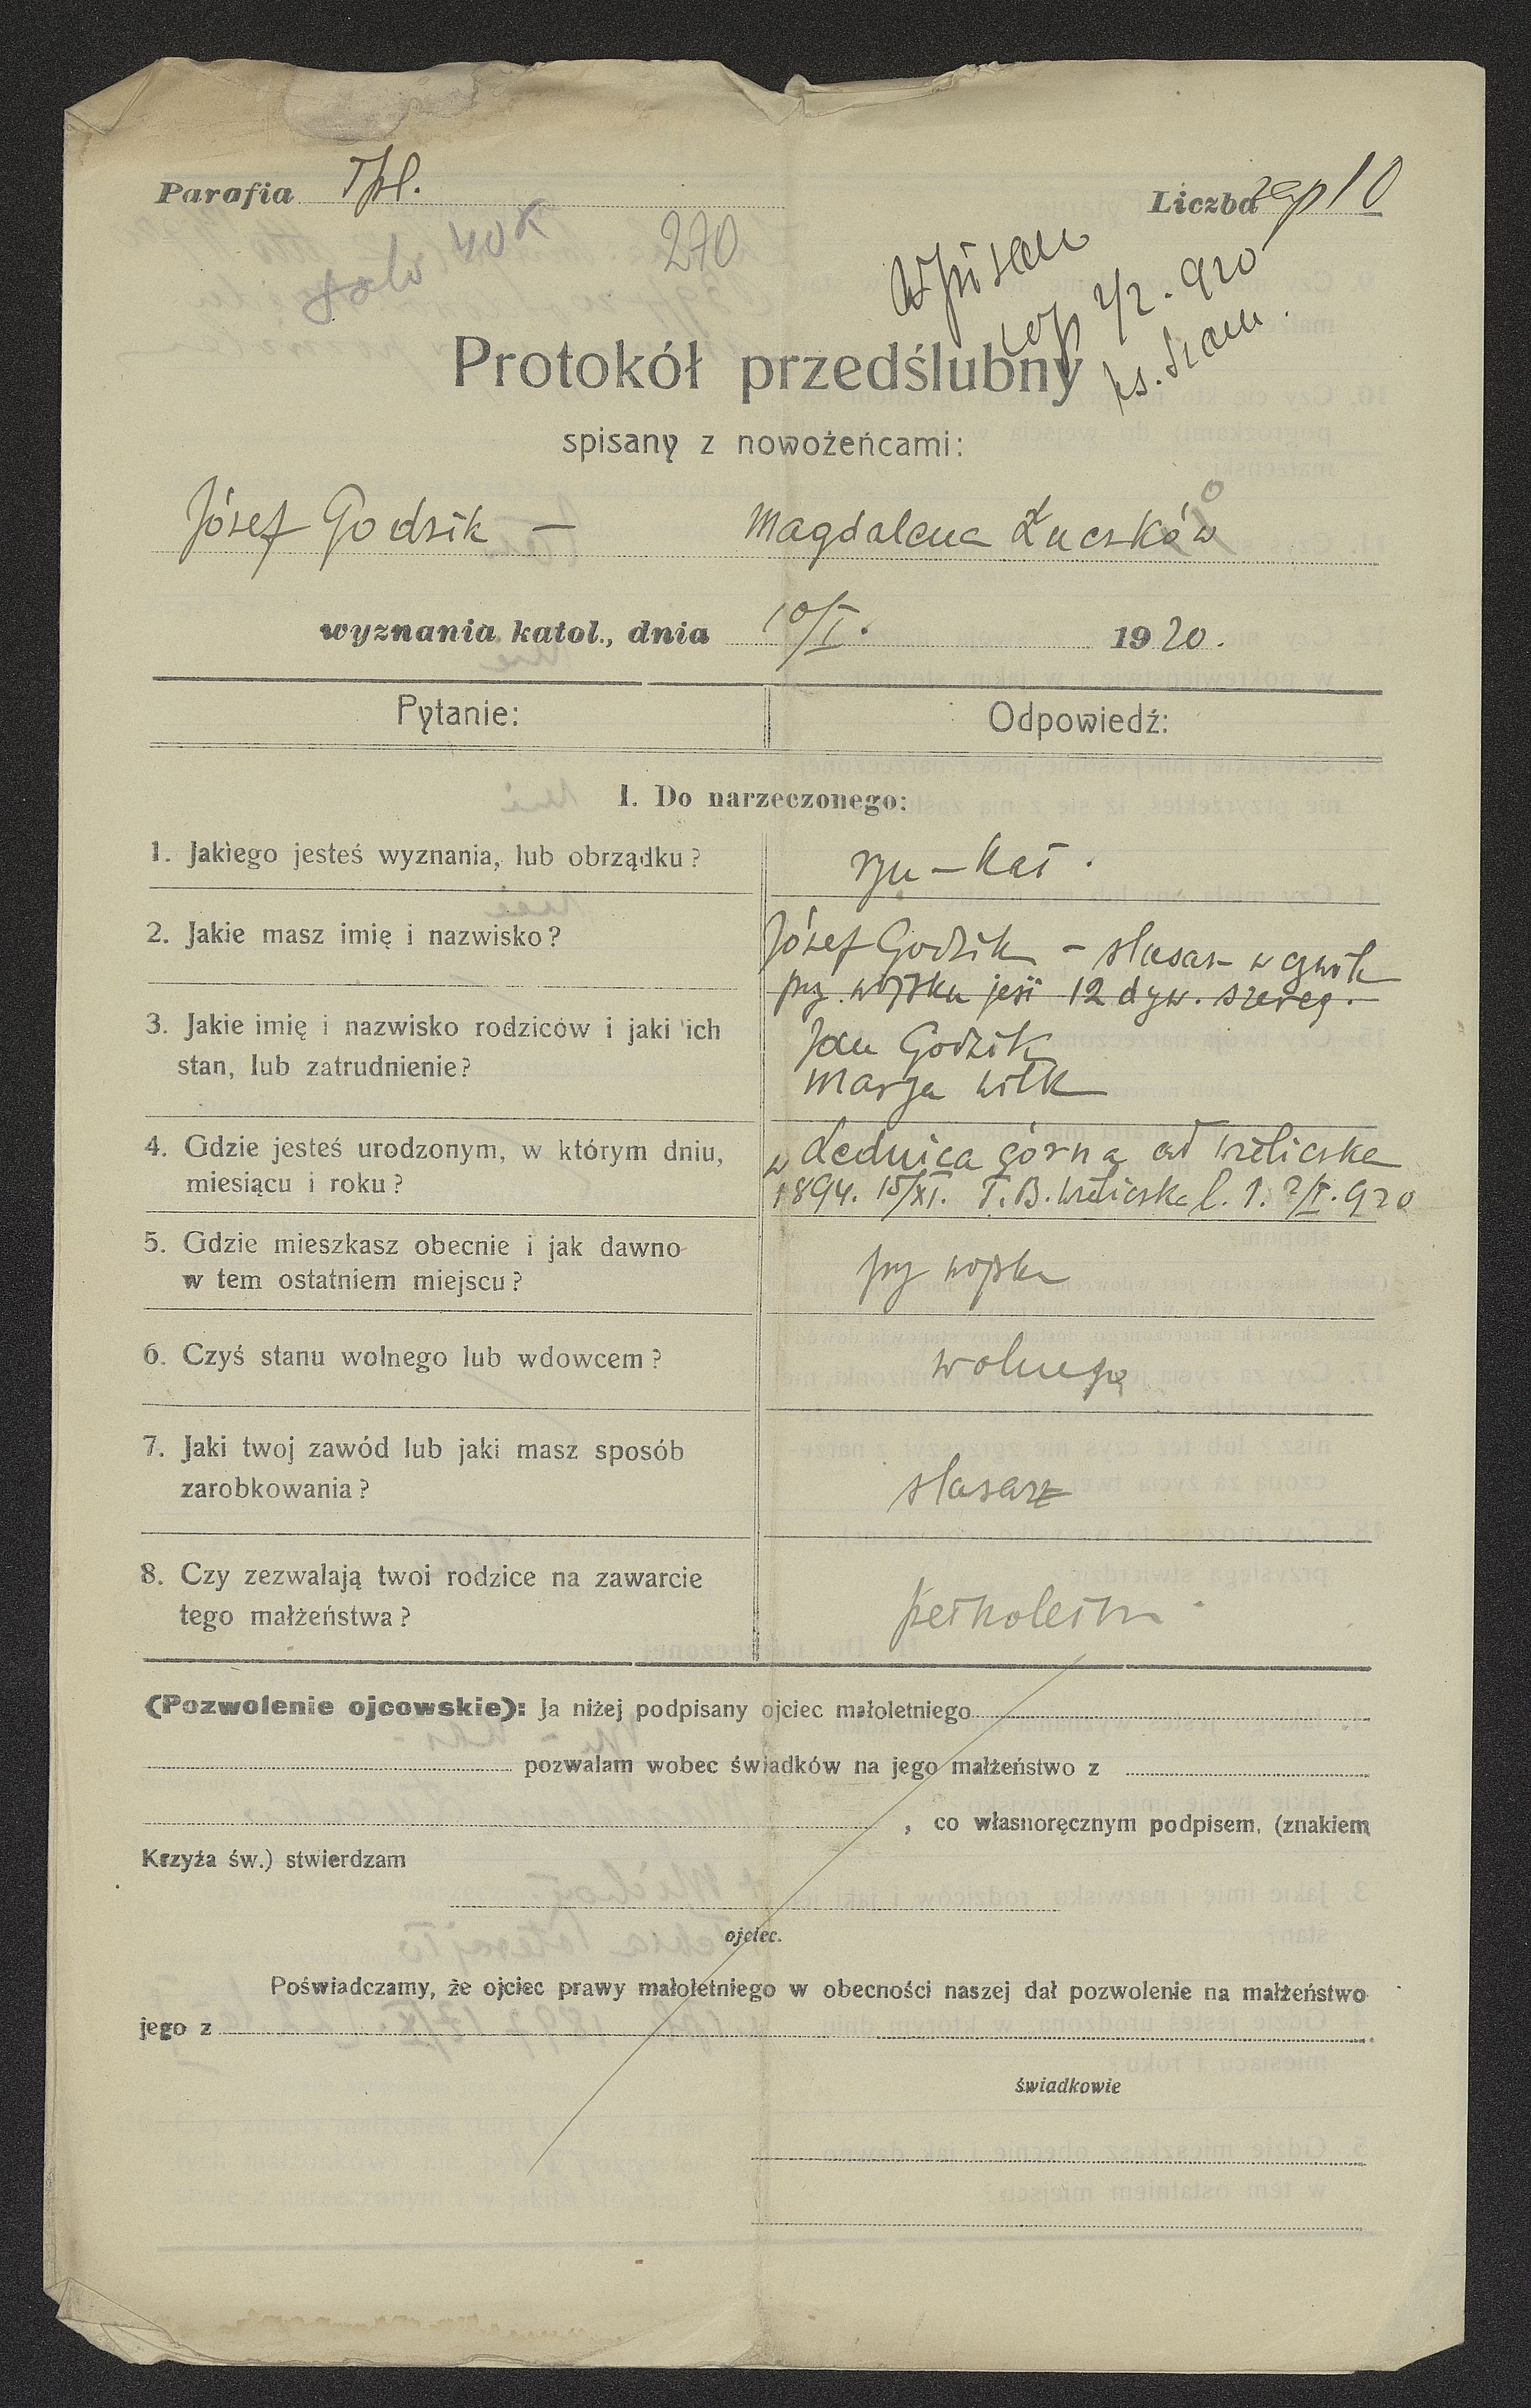 Parafia Tpl. Liczba zap 10
40 K 270
Wpisano
zap 2/2. 920
ks.
Protokół przedślubny
spisany z nowożeńcami:
Józef Godzik — Magdalena Łuczków
wyznania katol., dnia 10/I. 1920.
Pytanie: Odpowiedź:
I. Do narzeczonego:
1. Jakiego jesteś wyznania, lub obrządku? rzy-kat.
2. Jakie masz imię i nazwisko? Józef Godzik – slusarz w cywilu
przy wojsku jest 12 dyw. szereg.
3. Jakie imię i nazwisko rodziców i jaki ich Jan Godzik
stan, lub zatrudnienie? Marya Wilk
4. Gdzie jesteś urodzonym, w którym dniu, w Lednica górna ad Wieliczka
miesiącu i roku? 1894. 15/XI. T. B. Wieliczka l. 1. 2/I. 920
5. Gdzie mieszkasz obecnie i jak dawno
w tem ostatniem miejscu? przy wojsku
6. Czyś stanu wolnego lub wdowcem? wolnego
7. Jaki twoj zawód lub jaki masz sposób
zarobkowania? slusarz
8. Czy zezwalają twoi rodzice na zawarcie
tego małżeństwa? pełnoletni
(Pozwolenie ojcowskie): Ja niżej podpisany ojciec małoletniego
pozwalam wobec świadków na jego małżeństwo z
, co własnoręcznym podpisem, (znakiem
Krzyża św.) stwierdzam
ojciec.
Poświadczamy, że ojciec prawy małoletniego w obecności naszej dał pozwolenie na małżeństwo
jego z
świadkowie